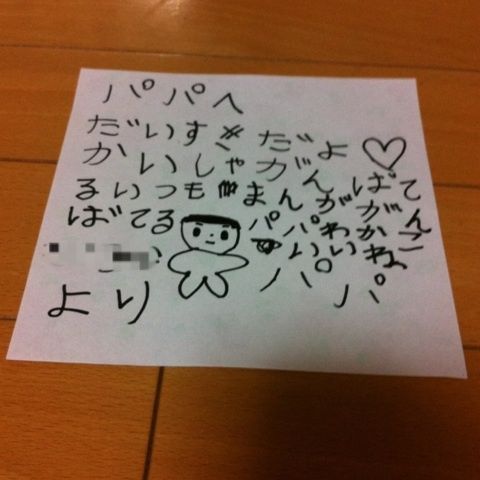 パパへ
だいすきだよ♡
かいしゃがんばて
るいつもまんががん
ばてるパパわかこ
いいね
より パパ